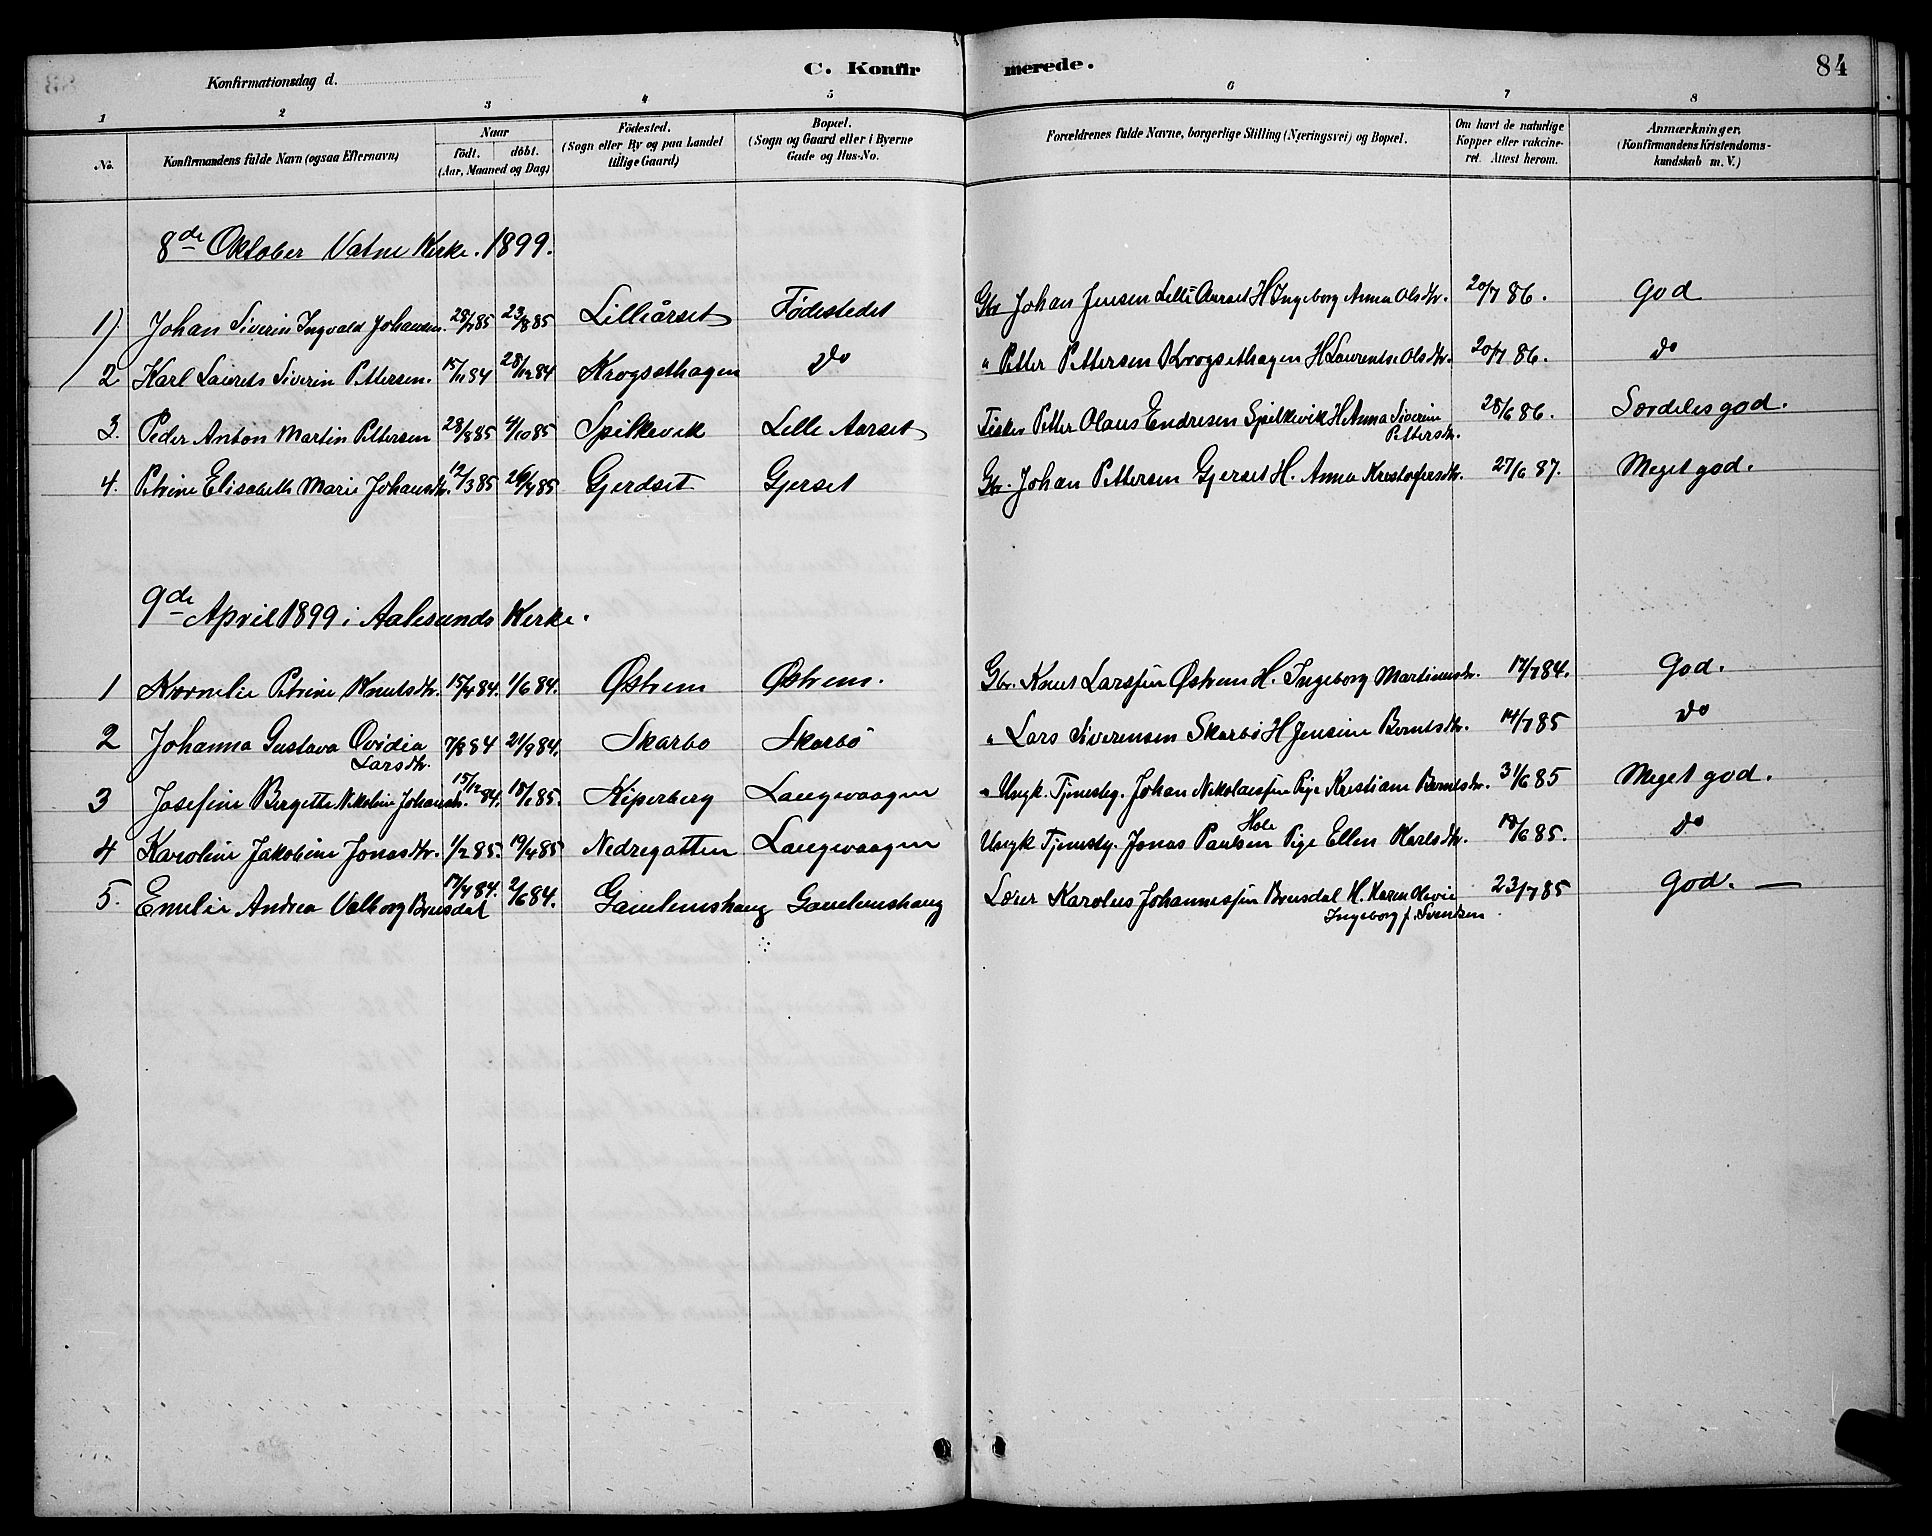 Konfirmationsdag d.
C. Konfir
merede.
84
1 2 3 4 5 6 7 8
No.
Konfirmandens fulde Navn (ogsaa Efternavn)
Naar
födt. döbt.
(Aar, Maaned og Dag)
Födested.
(Sogn eller By og paa Landet
tillige Gaard)
Bopæl.
(Sogn og Gaard eller i Byerne
Gade og Hus-No.
Forældrenes fulde Navne, borgerlige Stilling (Næringsvei) og Bopæl.
Om havt de naturlige
Kopper eller vakcine-
ret. Attest herom.
Anmærkninger.
(Konfirmandens Kristendoms-
kundskab m. V.)
8de Oktober Vatne Kirke. 1899.
1) Johan Siverin Ingvald Johansen. 28/7 85 23/8 85 Lilleårset Fødestedet Gbr Johan Jensen Lille Aarset H Ingeborg Anna Olsdtr. 20/7 86. God
2 Karl Laurits Siverin Pettersen. 15/11 84 28/12 84 Krogsethagen do " Petter Pettersen Krogsethagen H Laurentse Olsdtr. 20/7 86. do
3. Peder Anton Martin Pettersen 28/8 85 4/10 85 Spilkevik Lille Aarset Fisker Petter Olaus Endresen Spilkevik H Anna Siverine
Pettersdtr. 28/6 86. Særdeles god.
4. Petrine Elisabeth Marie Johansdtr. 12/3 85 26/4 85 Gjerdset Gjerset Gbr. Johan Pettersen Gjerset H. Anna Krestofersdtr. 27/6 87. Meget god.
9de April 1899 i Aalesunds Kirke.
1 Kornelie Petrine Knutsdtr. 15/4 84. 1/6 84. Østrem Østrem. Gbr. Knut Larssen Østrem H. Ingeborg Martinusdtr. 17/7 84. God.
2 Johanna Gustava Ovidia
Larsdtr. 7/8 84 21/9 84. Skarbø Skarbö " Lars Siverensen Skarbö H Jensine Berntsdtr. 14/7 85 do
3 Josefine Bergette Nikoline Johansdtr. 15/12 84. 18/1 85. Kiperberg Langevaagen " Ungk. Tjenestg. Johan Nikolaissen Pige Kristiane Berntsdtr. 31/6 85 Meget god.
4 Karoline Jakobine Jonasdtr. 1/2 85. 19/4 85 Nedregotten Langevaagen Ungk Tjenestg. Jonas Paulsen Hole Pige Ellen Karlsdtr. 18/6 85. do
5. Emilie Andrea Valborg Brusdal 17/4 84. 2/6 84. Gamlemshaug Gamlemshaug Lærer Karolus Johannessen Brusdal H. Karen Olevie
Ingeborg f. Svendsen. 23/7 85 God. —